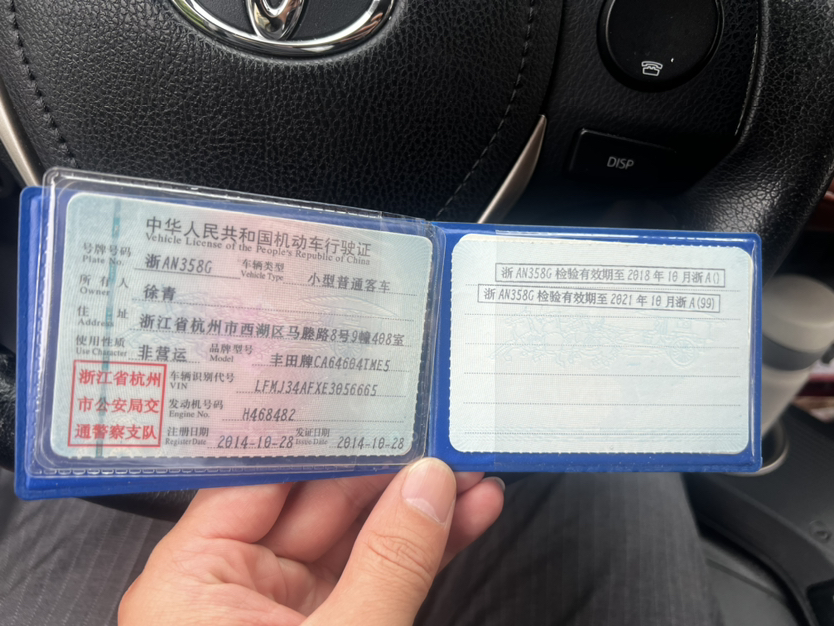 DISP
中华人民共和国机动车行驶证
Vehicle License of the People's Republic of China
号牌号码 Plate No. 浙AN358G 车辆类型 Vehicle Type 小型普通客车
所有人 Owner 徐青
住址 Address 浙江省杭州市西湖区马塍路8号9幢408室
使用性质 Use Character 非营运 品牌型号 Model 丰田牌CA64604TME5
浙江省杭州市公安局交通警察支队
车辆识别代号 VIN LFMJ34AFXE3056665
发动机号码 Engine No. H468482
注册日期 Register Date 2014-10-28 发证日期 Issue Date 2014-10-28
浙AN358G 检验有效期至 2018 年 10 月浙A()
浙AN358G 检验有效期至 2021 年 10 月浙A(99)